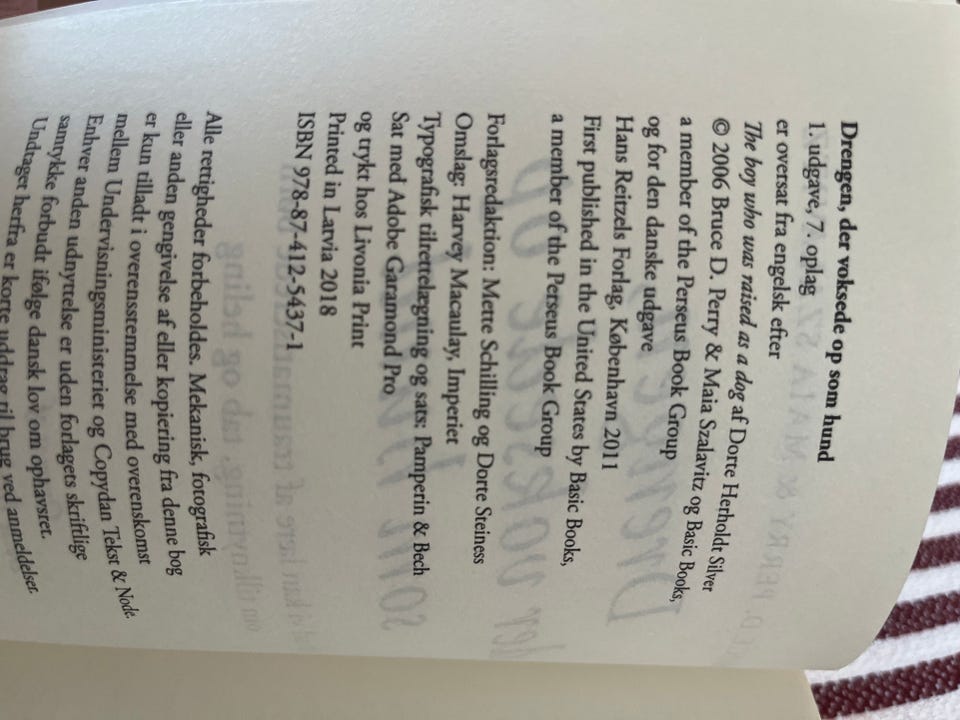 Drengen, der voksede op som hund
1. udgave, 7. oplag
er oversat fra engelsk efter
The boy who was raised as a dog af Dorte Herholdt Silver
© 2006 Bruce D. Perry & Maia Szalavitz og Basic Books,
a member of the Perseus Book Group
og for den danske udgave
Hans Reitzels Forlag, København 2011
First published in the United States by Basic Books,
a member of the Perseus Book Group
Forlagsredaktion: Mette Schilling og Dorte Steiness
Omslag: Harvey Macaulay, Imperiet
Typografisk tilrettelægning og sats: Pamperin & Bech
Sat med Adobe Garamond Pro
og trykt hos Livonia Print
Printed in Latvia 2018
ISBN 978-87-412-5437-1
Alle rettigheder forbeholdes. Mekanisk, fotografisk
eller anden gengivelse af eller kopiering fra denne bog
er kun tilladt i overensstemmelse med overenskomst
mellem Undervisningsministeriet og Copydan Tekst & Node.
Enhver anden udnyttelse er uden forlagets skriftlige
samtykke forbudt ifølge dansk lov om ophavsret.
Undtaget herfra er korte uddrag til brug ved anmeldelser.